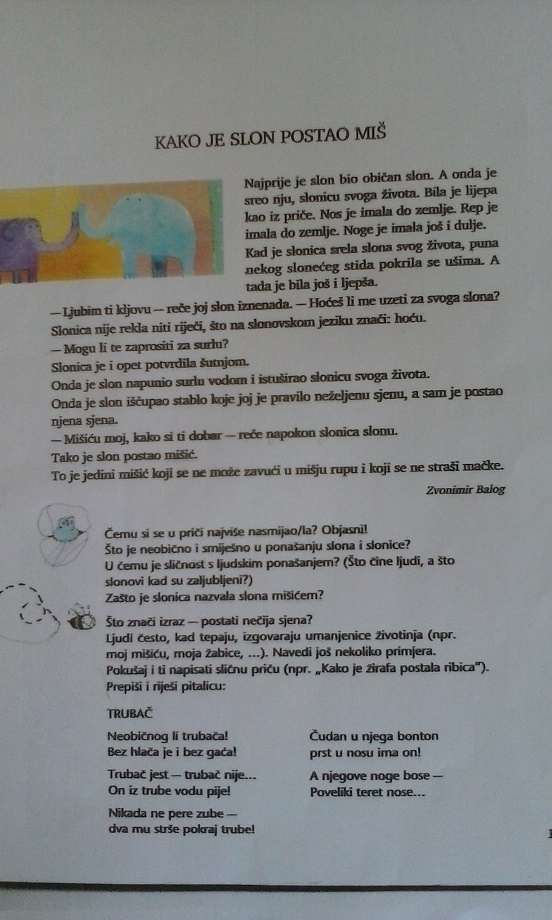 KAKO JE SLON POSTAO MIŠ
Najprije je slon bio običan slon. A onda je
sreo nju, slonicu svoga života. Bila je lijepa
kao iz priče. Nos je imala do zemlje. Rep je
imala do zemlje. Noge je imala još i dulje.
Kad je slonica srela slona svog života, puna
nekog slonećeg stida pokrila se ušima. A
tada je bila još i ljepša.
— Ljubim ti kljovu — reče joj slon iznenada. — Hoćeš li me uzeti za svoga slona?
Slonica nije rekla niti riječi, što na slonovskom jeziku znači: hoću.
— Mogu li te zaprositi za surlu?
Slonica je i opet potvrdila šutnjom.
Onda je slon napunio surlu vodom i istuširao slonicu svoga života.
Onda je slon iščupao stablo koje joj je pravilo neželjenu sjenu, a sam je postao
njena sjena.
— Mišiću moj, kako si ti dobar — reče napokon slonica slonu.
Tako je slon postao mišić.
To je jedini mišić koji se ne može zavući u mišju rupu i koji se ne straši mačke.
Zvonimir Balog
Čemu si se u priči najviše nasmijao/la? Objasni!
Što je neobično i smiješno u ponašanju slona i slonice?
U čemu je sličnost s ljudskim ponašanjem? (Što čine ljudi, a što
slonovi kad su zaljubljeni?)
Zašto je slonica nazvala slona mišićem?
Što znači izraz — postati nečija sjena?
Ljudi često, kad tepaju, izgovaraju umanjenice životinja (npr.
moj mišiću, moja žabice, ...). Navedi još nekoliko primjera.
Pokušaj i ti napisati sličnu priču (npr. „Kako je žirafa postala ribica").
Prepiši i riješi pitalicu:
TRUBAČ
Neobičnog li trubača!
Bez hlača je i bez gaća!
Trubač jest — trubač nije...
On iz trube vodu pije!
Nikada ne pere zube —
dva mu strše pokraj trube!
Čudan u njega bonton
prst u nosu ima on!
A njegove noge bose —
Poveliki teret nose...